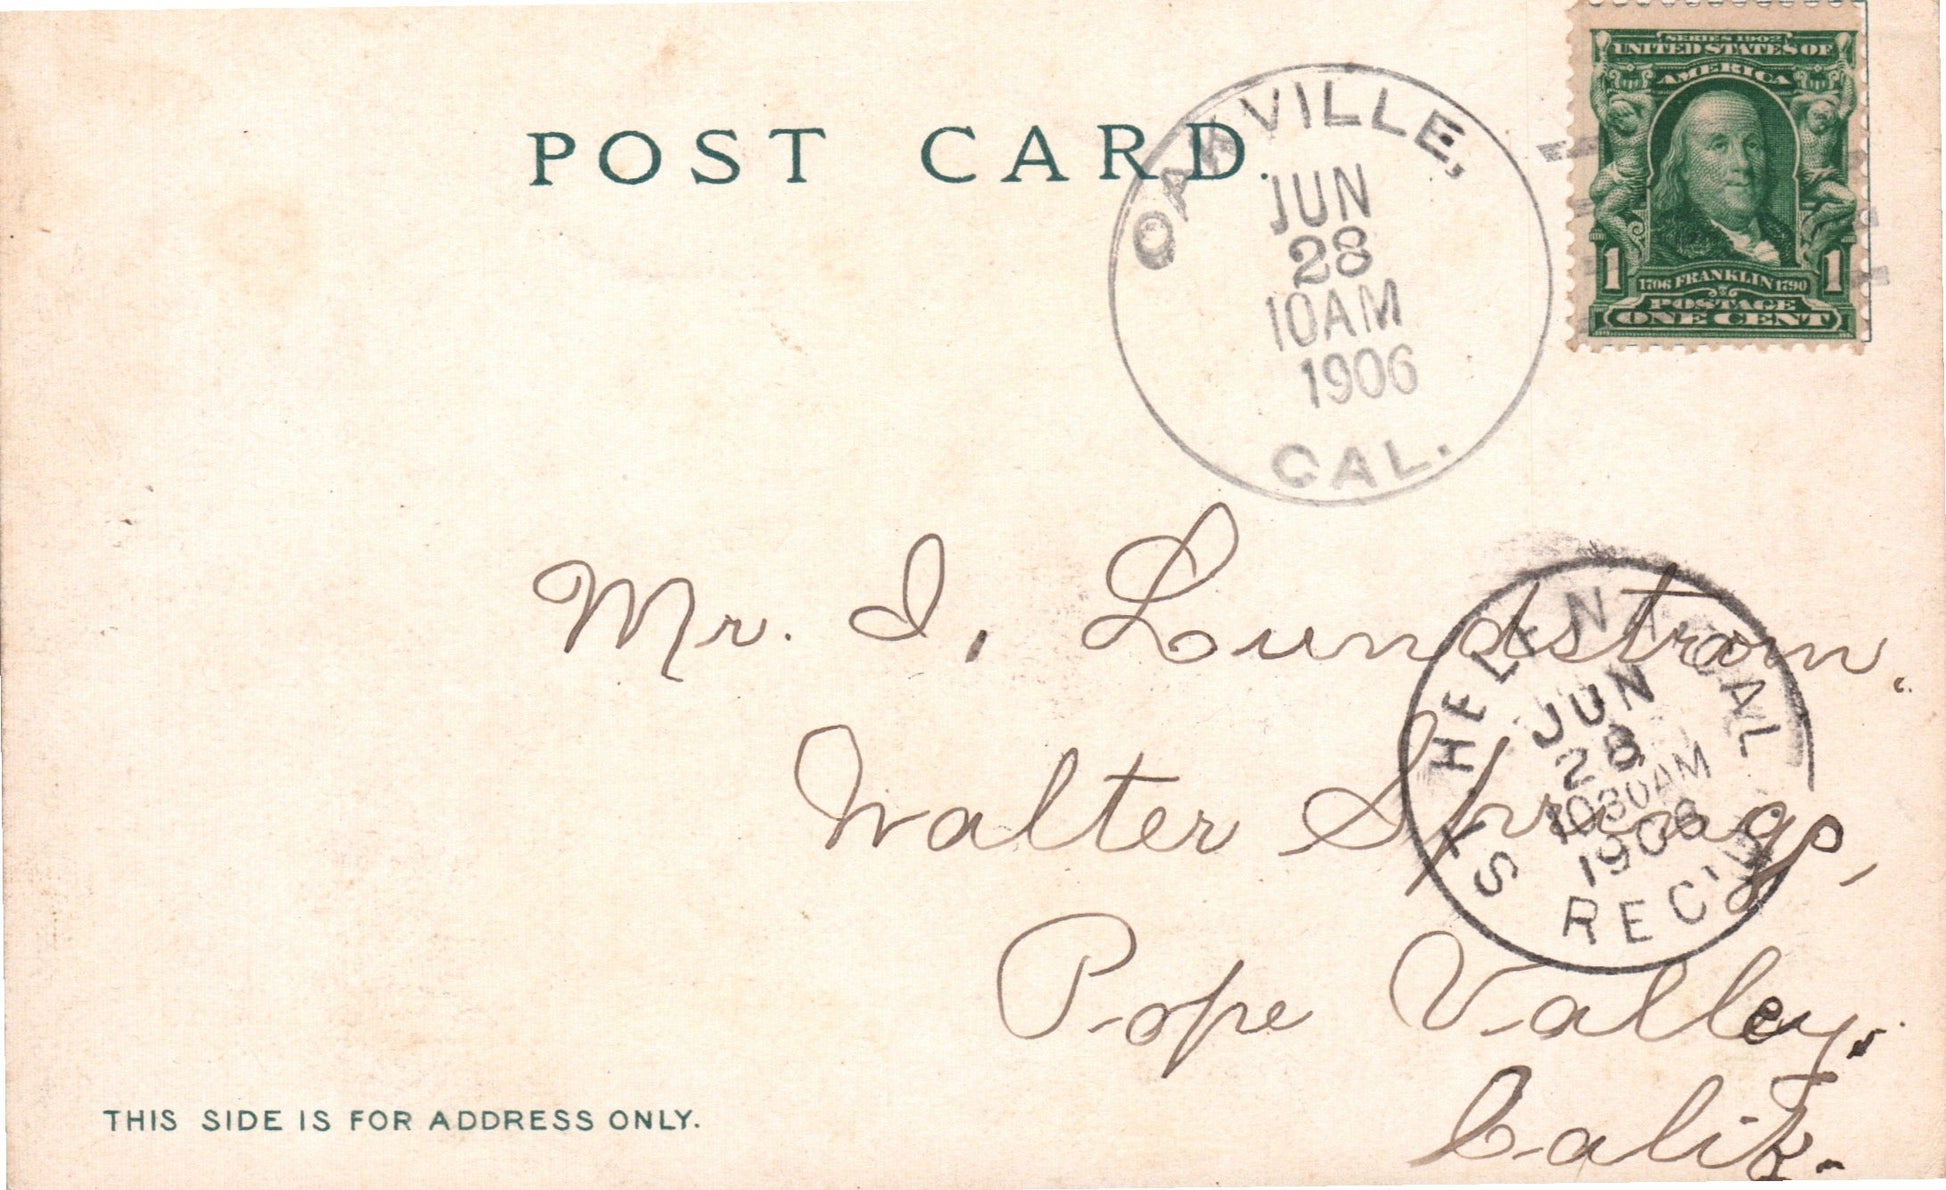 POST CARD.
SERIES 1902
UNITED STATES OF
AMERICA
1 1706 FRANKLIN 1790 1
POSTAGE
ONE CENT
OAKVILLE,
JUN
28
10AM
1906
CAL.
Mr. I. Lundstrom.
Walter Springs,
Pope Valley.
Calif.
ST HELENA CAL
JUN
28
1030AM
1906
REC'D
THIS SIDE IS FOR ADDRESS ONLY.